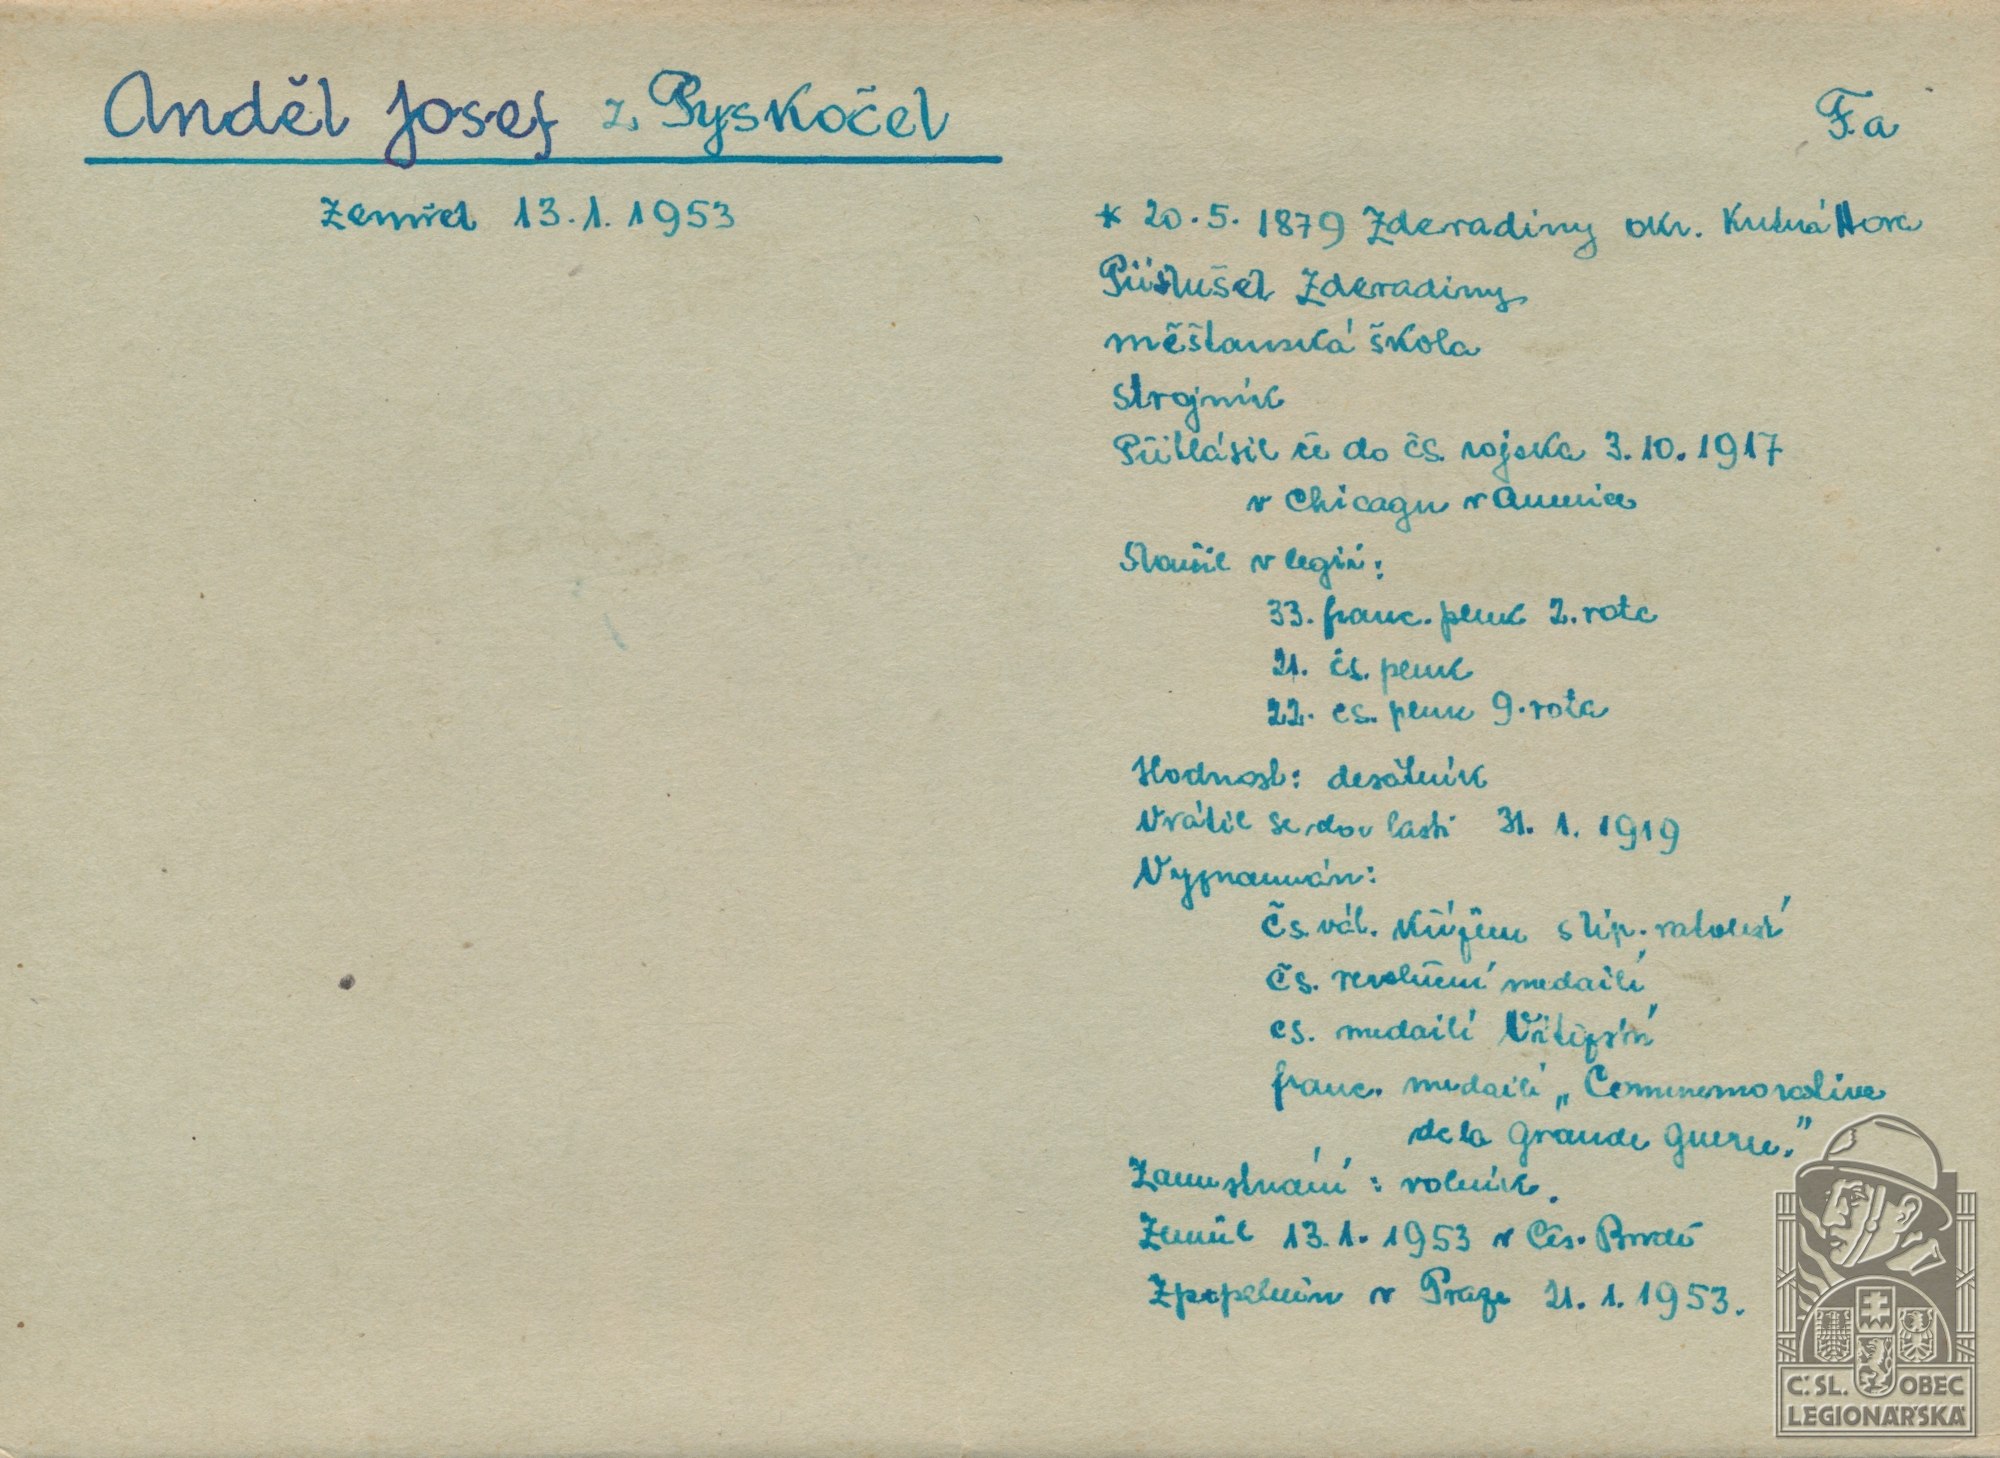 Anděl Josef z Pyskočel
F. a
Zemřel 13.1.1953
* 20.5. 1879 Zderadiny okr. Kutná Hora
Příslušel Zderadiny
měšťanská škola
strojník
Přihlásil se do čs. vojska 3.10.1917
v Chicagu v Americe
Sloužil v legii:
33. franc. pluk 2. rota
21. čs. pluk
22. čs. pluk 9. rota
Hodnost: desátník
Vrátil se do vlasti 31. 1. 1919
Vyznamenán:
Čs. vál. křížem s lip. ratolestí
Čs. revoluční medailí
čs. medailí Vítězství
franc. medailí „Commemorative
de la Grande Guerre."
Zaměstnání: rolník.
Zemřel 13.1.1953 v Čes. Brodě
Zpopelněn v Praze 21.1.1953.
Č.SL. OBEC
LEGIONÁŘSKÁ